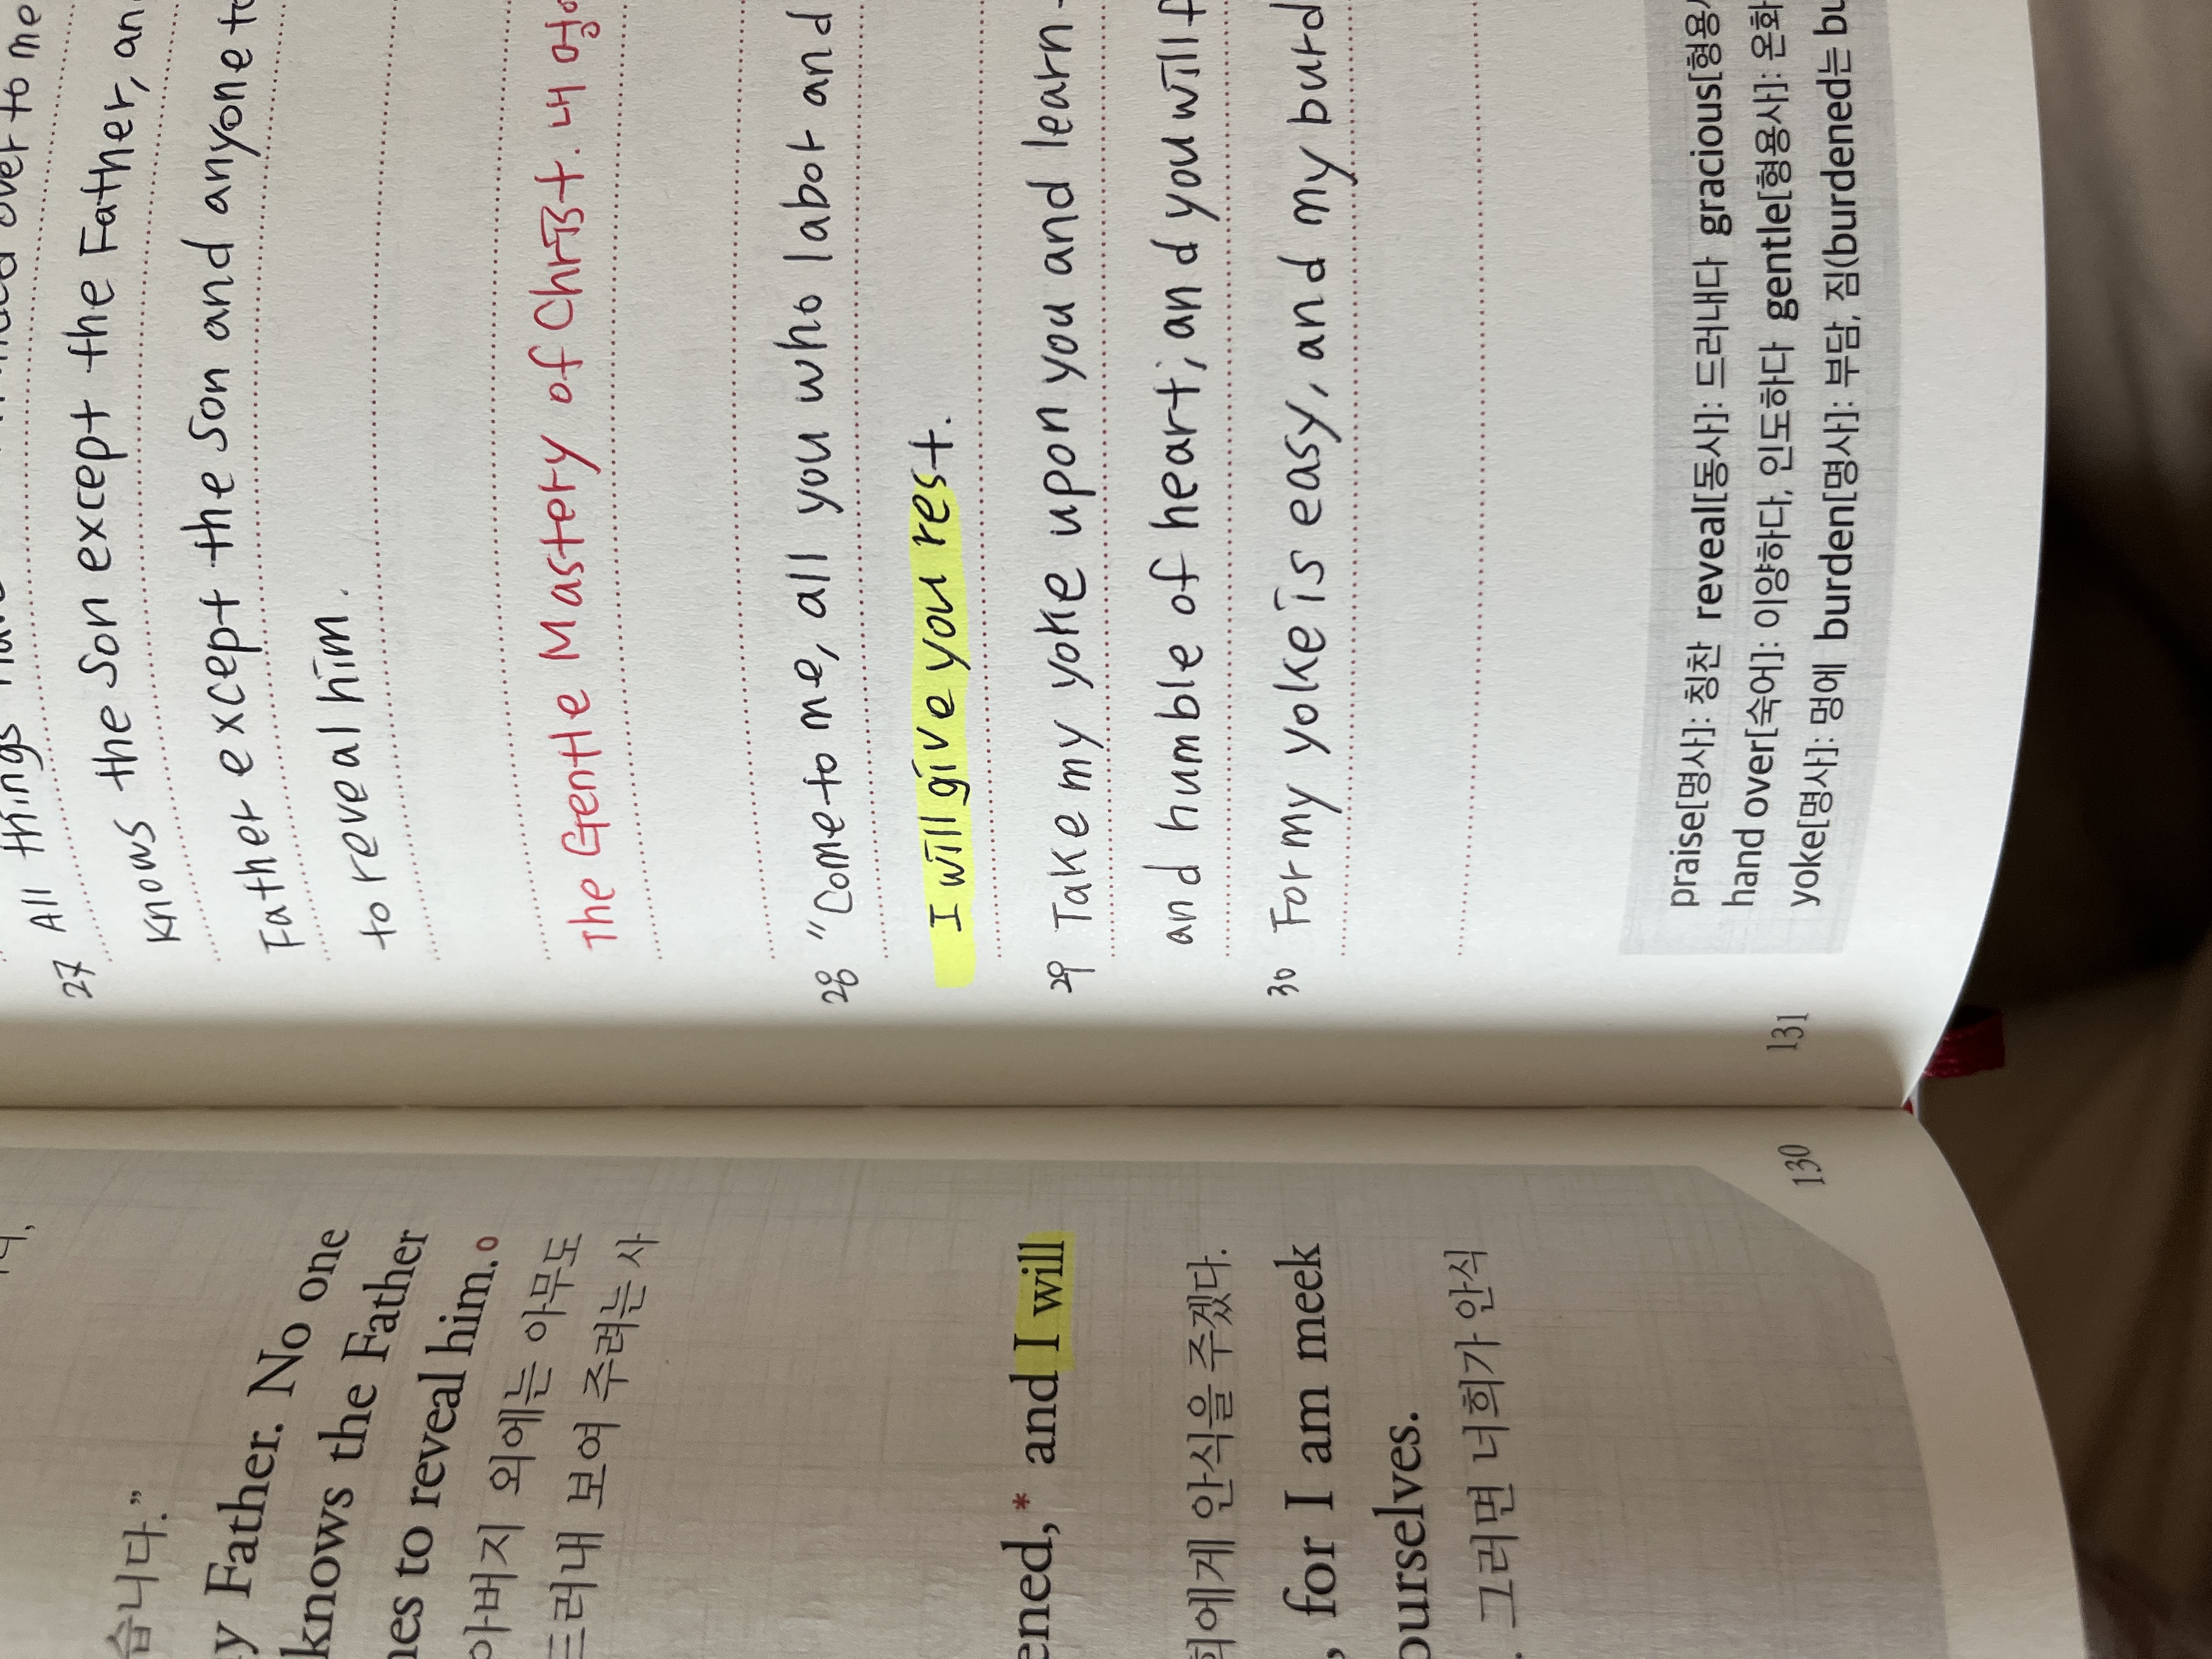 습니다.”
Father. No one
knows the Father
to reveal him.○
아버지 외에는 아무도
드러내 보여 주려는 사
and I will
안식을 주겠다.
, for I am meek
ourselves.
그러면 너희가 안식
130
over to me
27 All things
knows the Son except the Father, and
Father except the Son and anyone to
to reveal him.
The Gentle Mastery of Christ. 내
28 "Come to me, all you who labor and
I will give you rest.
29 Take my yoke upon you and learn
and humble of heart; and you will
30 For my yoke is easy, and my
praise[명사]: 칭찬 reveal[동사]: 드러내다 gracious[형용
hand over[숙어]: 이양하다, 인도하다 gentle[형용사]: 온화
yoke[명사]: 멍에 burden[명사]: 부담, 짐(burdened는
131